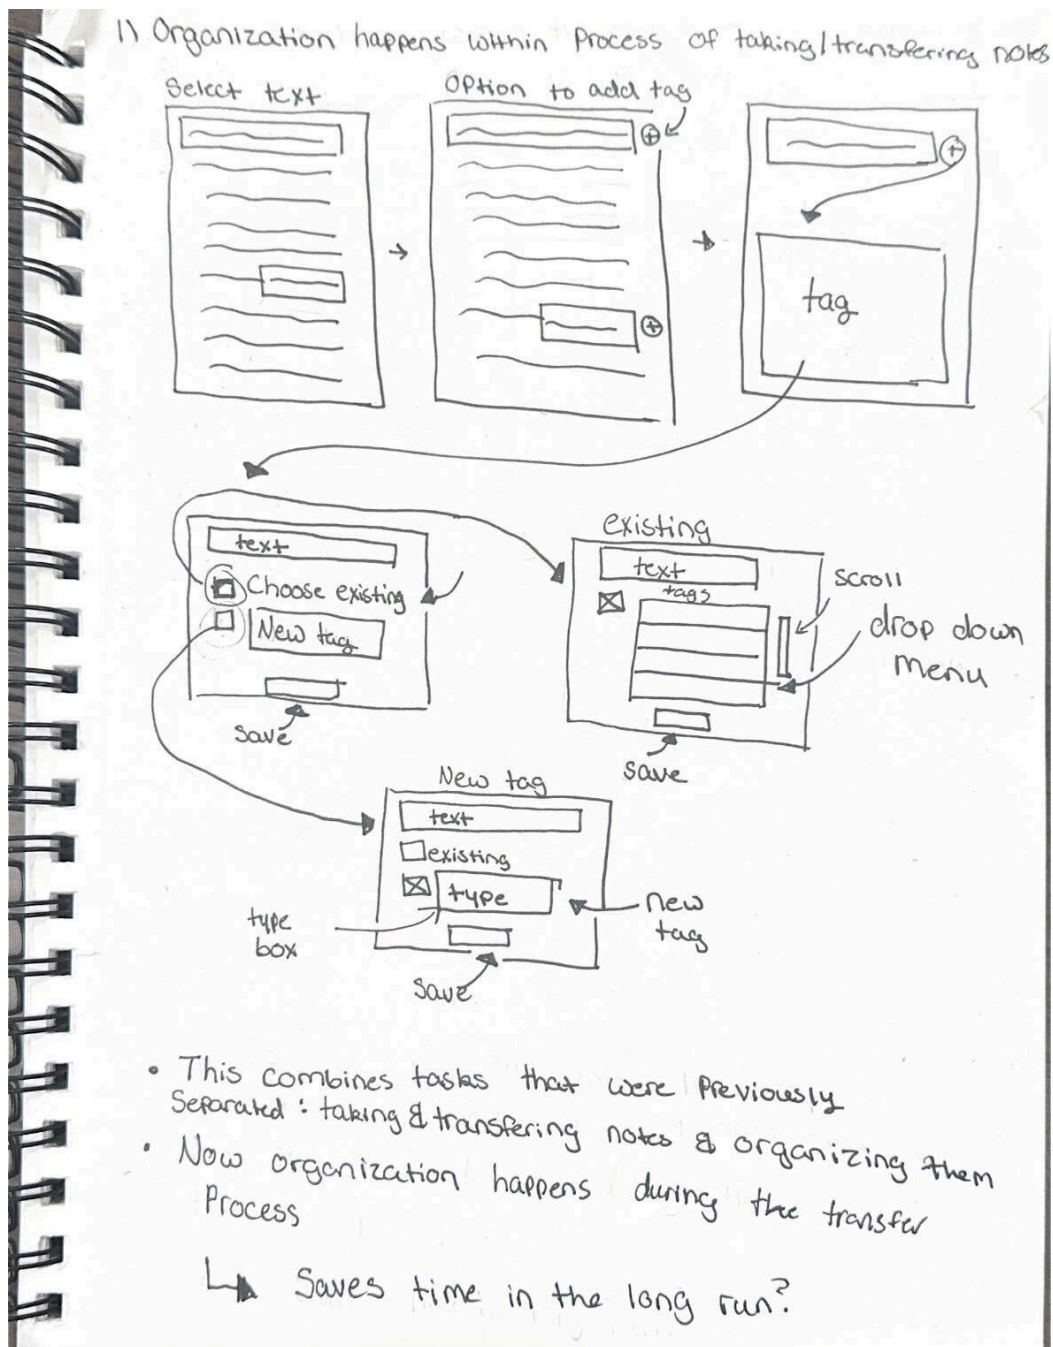 1) Organization happens within Process of taking/transfering notes
Select text
Option to add tag
tag
text
Choose existing
New tag
save
existing
text
tags
scroll
drop down
menu
save
New tag
text
existing
type
type
box
new
tag
save
• This combines tasks that were Previously
Separated : taking & transfering notes & organizing them
• Now organization happens during the transfer
Process
↳ Saves time in the long run?